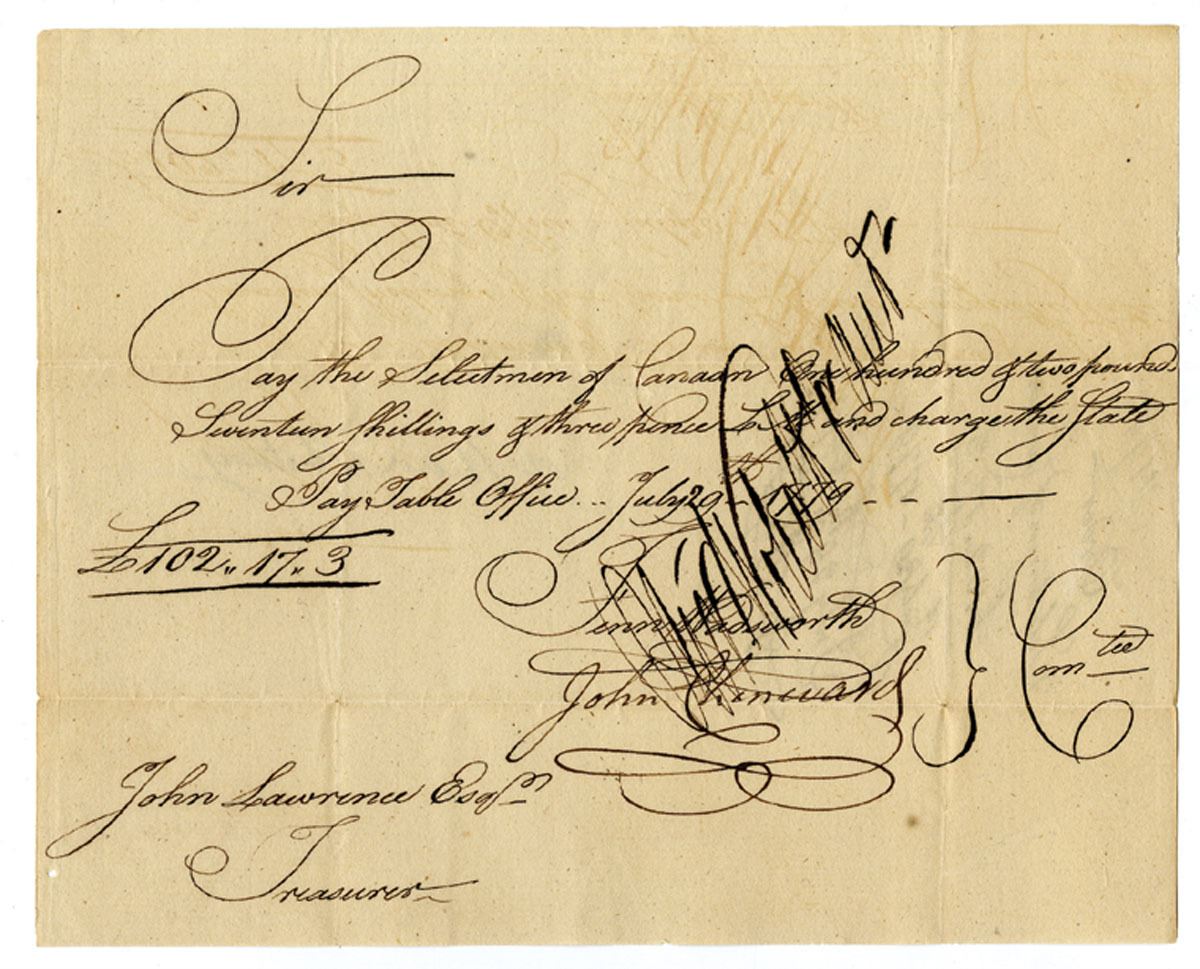 Sir
Pay the Selectmen of Canaan One hundred & two pounds
Seventeen Shillings & three pence L M and charge the State
Pay Table Office .. July 29th 1779 - - -
£102 „ 17 „ 3
Fenn Wadsworth
John Chenevard } Comtee
John Lawrence Esqr
Treasurer